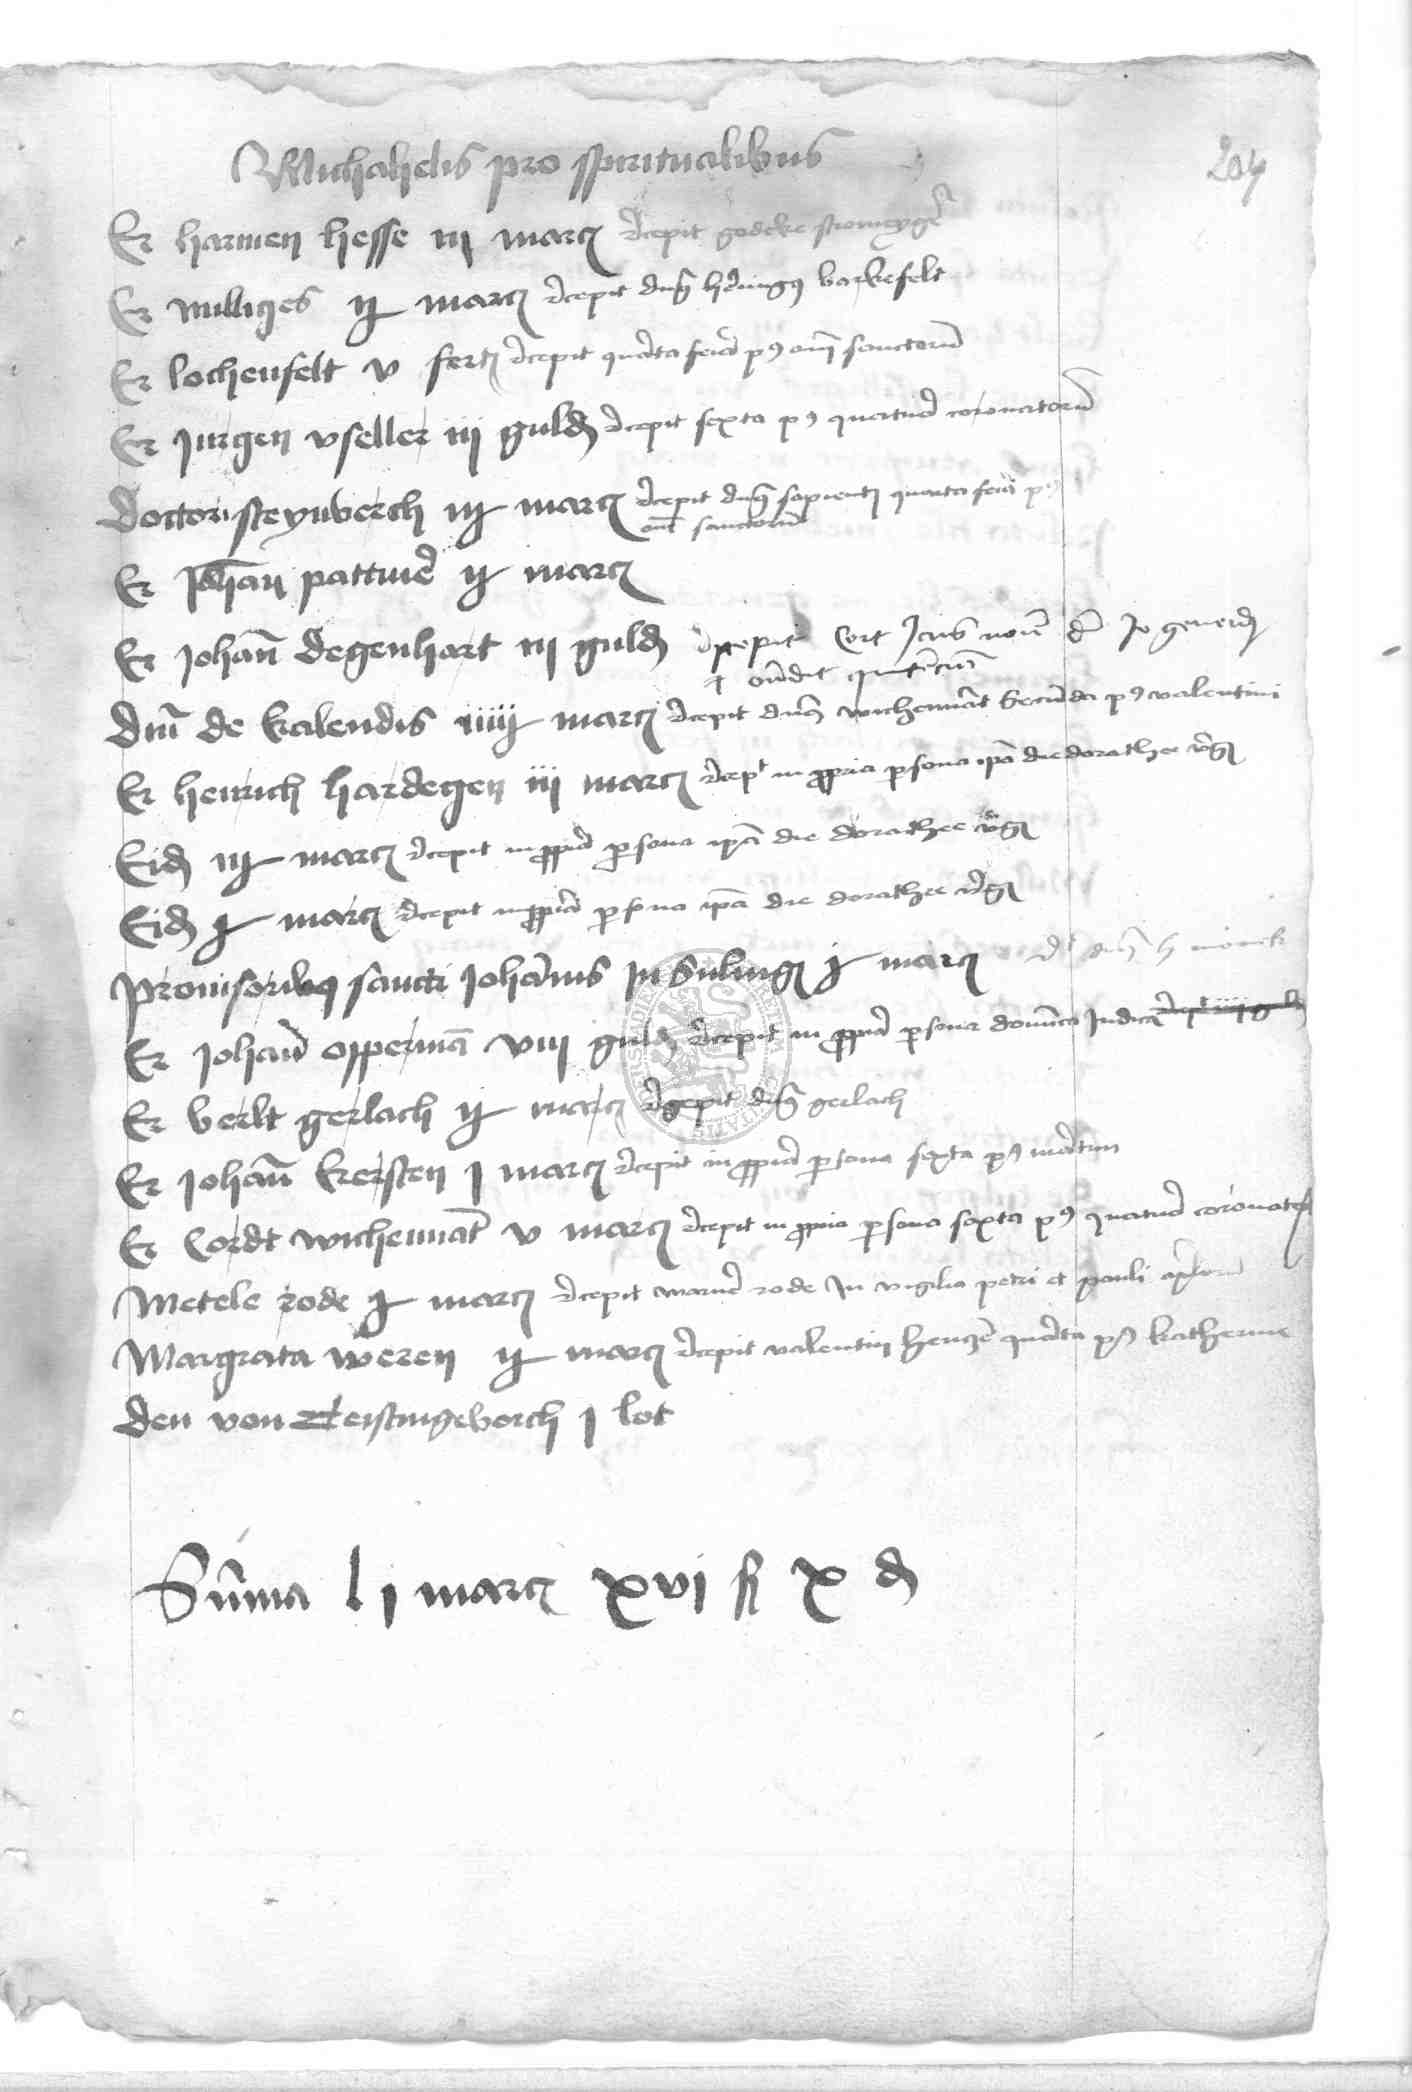 Michahelis pro spiritualibus
Er harmen hesse iij marc recepit godeke
Er milliges ij marc recepit dns heningus barkefelt
Er lochenfelt v fert recepit quarta feria post omnium sanctorum
Er jurgen vseller iij guld recepit sexta post quatuor coronatorum
Doctori steynberch iij marc recepit dns sapientis quarta feria post
omnium sanctorum
Er Johan pattiner ij marc
Er Johan Degenhart iij guld recepit Cort
Dni de kalendis marc recepit dns wichennant secunda post valentini
Er henrich hardegen iij marc recepit in propria persona ipsa die dorathee virginis
Eid iij marc recepit in propria persona ipsa die dorathee virginis
Eid marc recepit in propria persona ipsa die dorathee virginis
Provisoribus sancti Johannis In Suling marc
Er Johan opperman viij guld recepit in propria persona dominica Judica
Er berlt gerlach ij marc recepit dns gerlach
Er Johan kersten j marc recepit in propria persona sexta post martini
Er Cordt wichennant v marc recepit in propria persona sexta post quatuor coronator
Metele rode marc recepit warner rode In vigilia petri et pauli apostolorum
Margrata weren ij marc recepit valentin quarta post katherine
den von j lot
Summa lj marc xvj ß x d